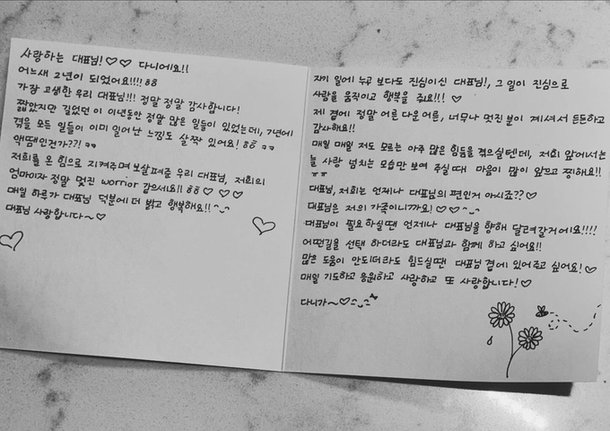 사랑하는 대표님! ♡♡ 다니에요!!
어느새 2년이 되었어요!!!! ㅎㅎ
가장 고생한 우리 대표님!!! 정말 정말 감사합니다!
짧았지만 길었던 이 이년동안 정말 많은 일들이 있었는데, 7년에
겪을 모든 일들이 이미 일어난 느낌도 살짝 있어요! ㅎㅎ ㅋㅋ
액땜인건가??! ㅋㅋ
저희를 온 힘으로 지켜주며 보살펴준 우리 대표님, 저희의
엄마이자 정말 멋진 worrior 같으세요!! ㅎㅎ ♡♡♡
매일 하루가 대표님 덕분에 더 밝고 행복해요!! ^_^
대표님 사랑합니다~♡
자기 일에 누구 보다도 진심이신 대표님!, 그 일이 진심으로
사람을 움직이고 행복을 줘요!!! ♡
제 곁에 정말 어른 다운 어른, 너무나 멋진 분이 계셔서 든든하고
감사해요!!
매일 매일 저도 모르는 아주 많은 힘듦을 겪으실텐데, 저희 앞에서는
늘 사랑 넘치는 모습만 보여 주실 때 마음이 많이 아프고 찡해요!!
ㅠㅠ
대표님, 저희는 언제나 대표님의 편인거 아시죠?? ♡
대표님은 저의 가족이니까요! ♡♡ ^_^
대표님이 필요하실땐 언제나 대표님을 향해 달려갈거에요!!!!
어떤길을 선택 하더라도 대표님과 함께 하고 싶어요!!
많은 도움이 안되더라도 힘드실때 대표님 곁에 있어주고 싶어요! ♡
매일 기도하고 응원하고 사랑하고 또 사랑합니다! ♡
다니가~♡